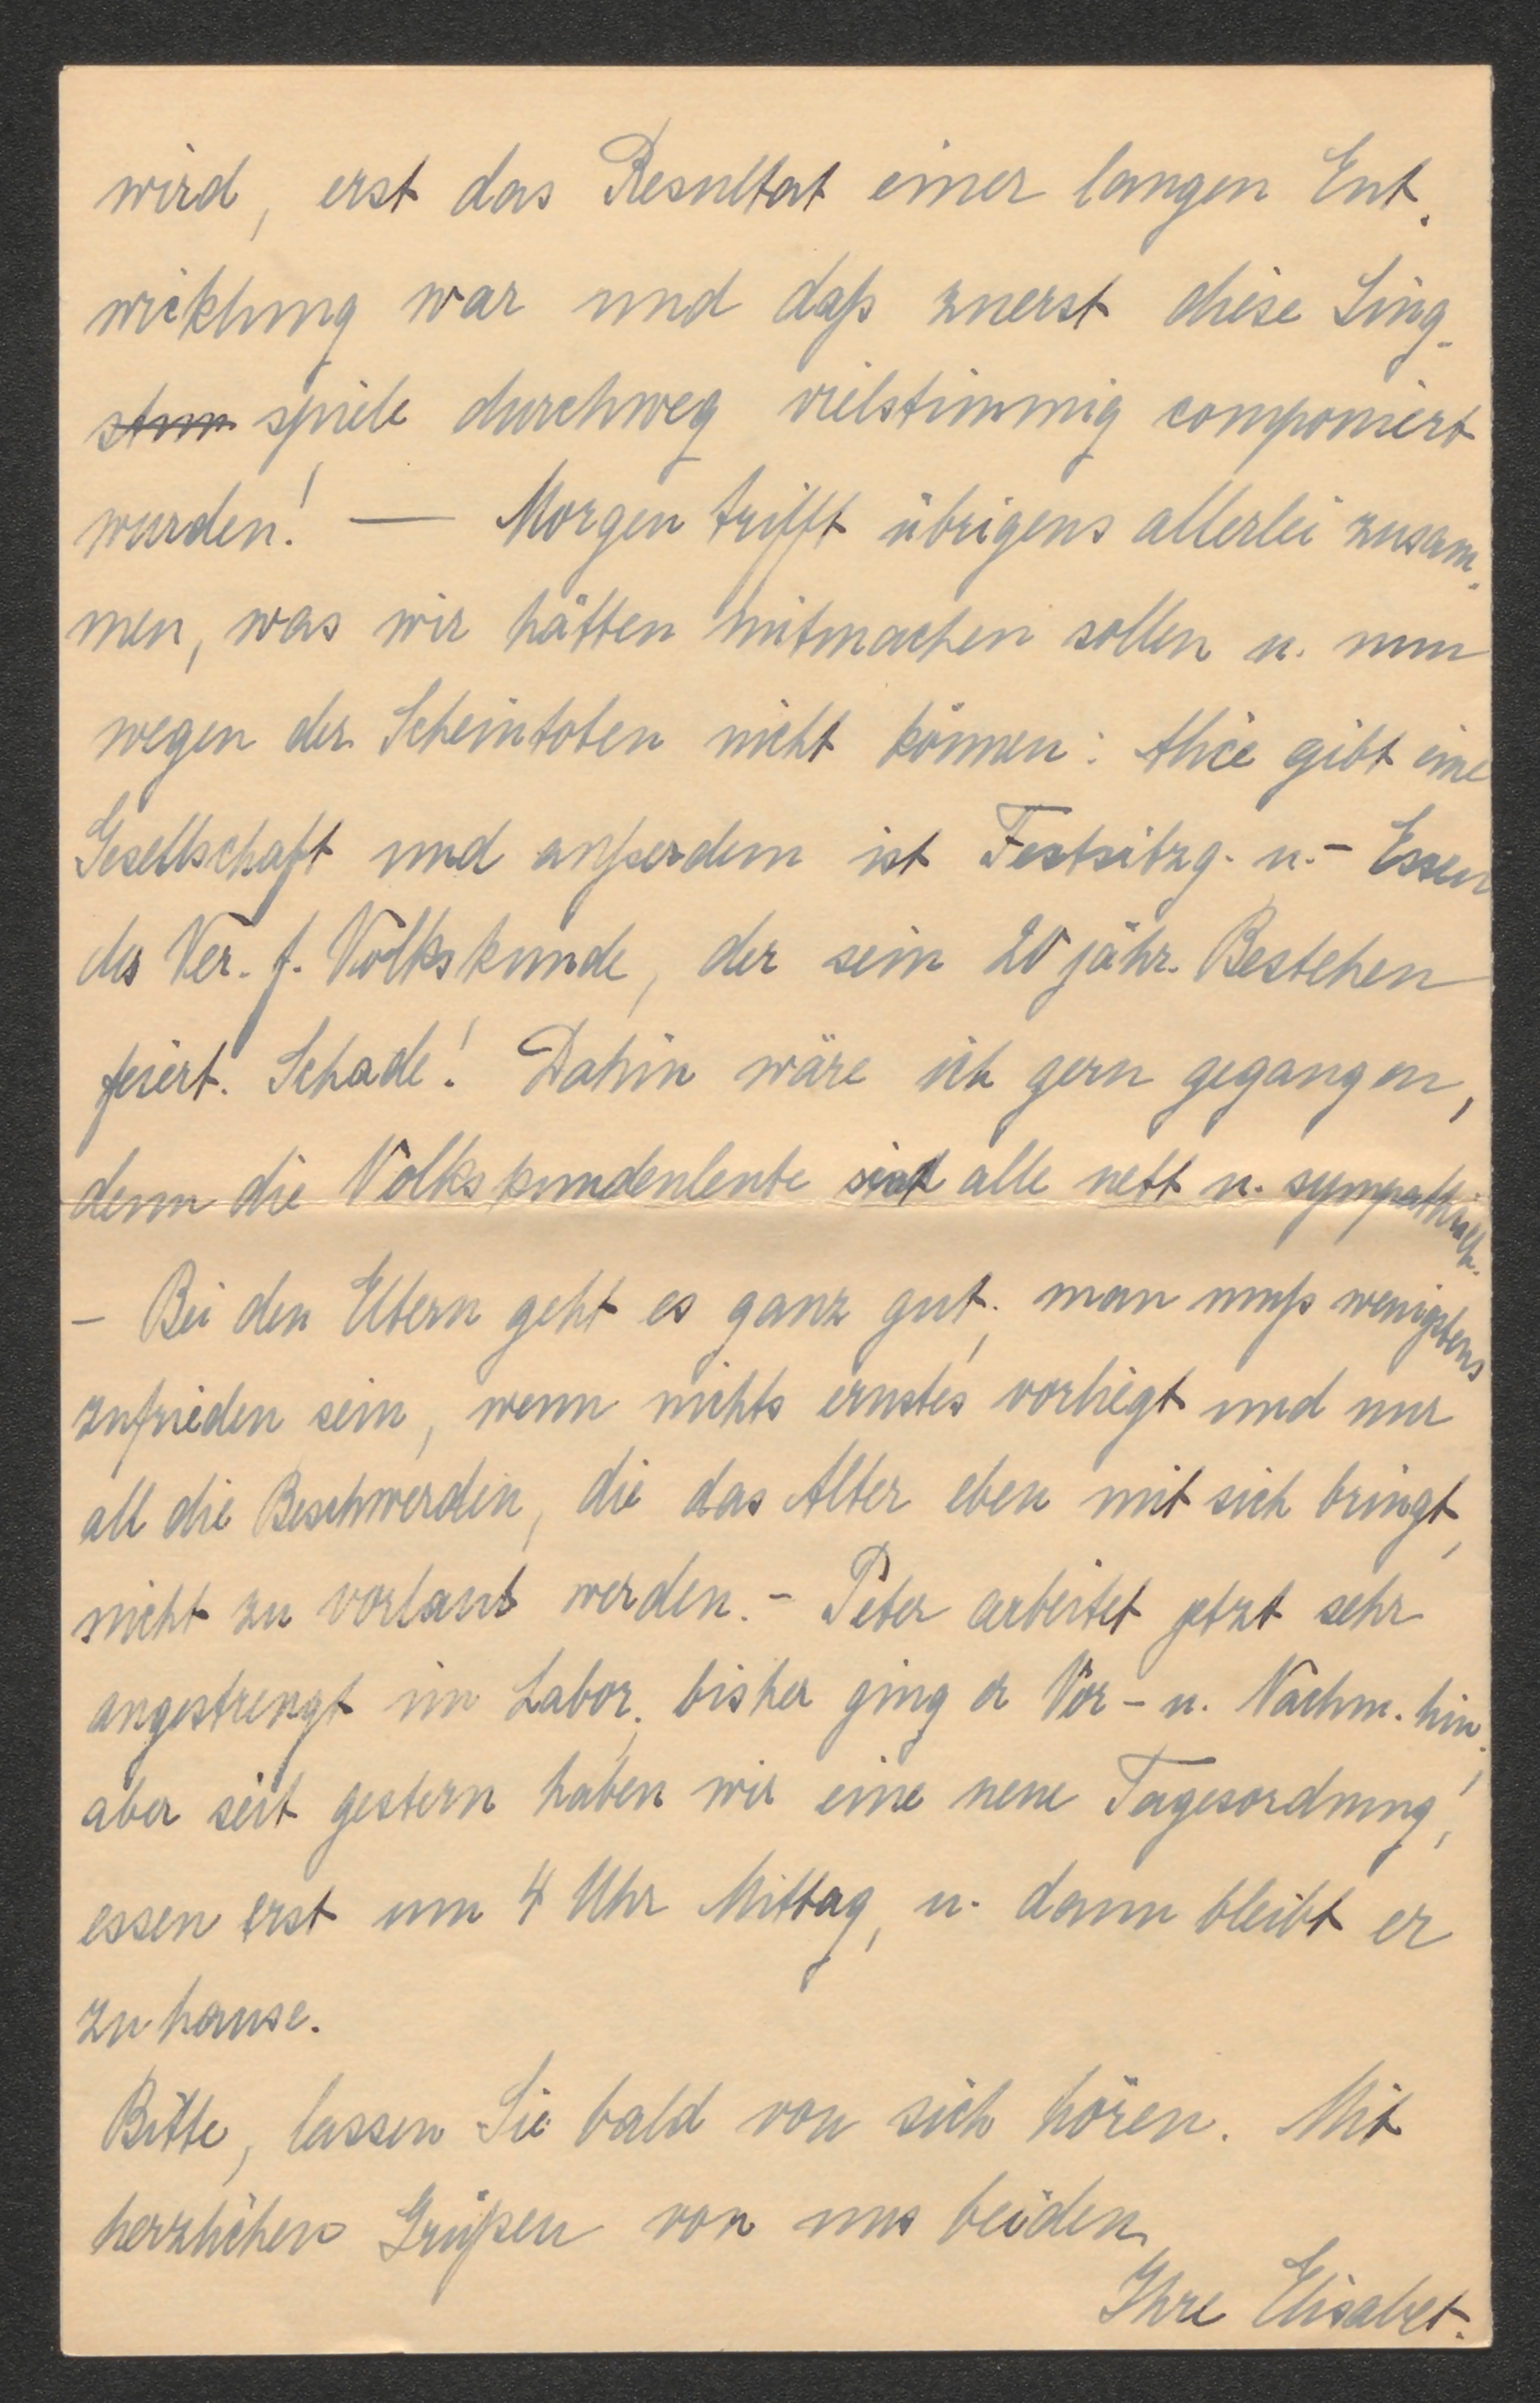 wird, erst das Resultat einer langen Ent-
wicklung war und daß zuerst diese Sing-
stim spiele durchweg vielstimmig componiert
wurden! — Morgen trifft übrigens allerlei zusam-
men, was wir hätten mitmachen sollen u. nun
wegen der Scheintoten nicht können: Alice gibt eine
Gesellschaft und außerdem ist Festsitzg. u.- Essen
des Ver. f. Volkskunde, der sein 20 jähr. Bestehen
feiert. Schade! Dahin wäre ich gern gegangen,
denn die Volkskundenleute sind alle nett u. sympathisch.
- Bei den Eltern geht es ganz gut; man muß wenigstens
zufrieden sein, wenn nichts ernstes vorliegt und nur
all die Beschwerden, die das Alter eben mit sich bringt,
nicht zu vorlaut werden. - Peter arbeitet jetzt sehr
angestrengt im Labor; bisher ging er Vor- u. Nachm. hin;
aber seit gestern haben wir eine neue Tagesordnung,
essen erst um 4 Uhr Mittag, u. dann bleibt er
zu hause.
Bitte, lassen Sie bald von sich hören. Mit
herzlichen Grüßen von uns beiden
Ihre Elisabet.